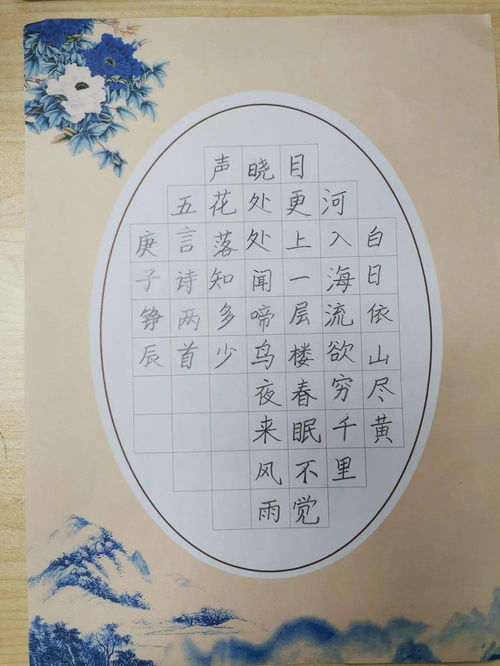 白日依山尽黄
河入海流欲穷千里
目更上一层楼春眠不觉
晓处处闻啼鸟夜来风雨
声花落知多少
五言诗两首
庚子铮辰